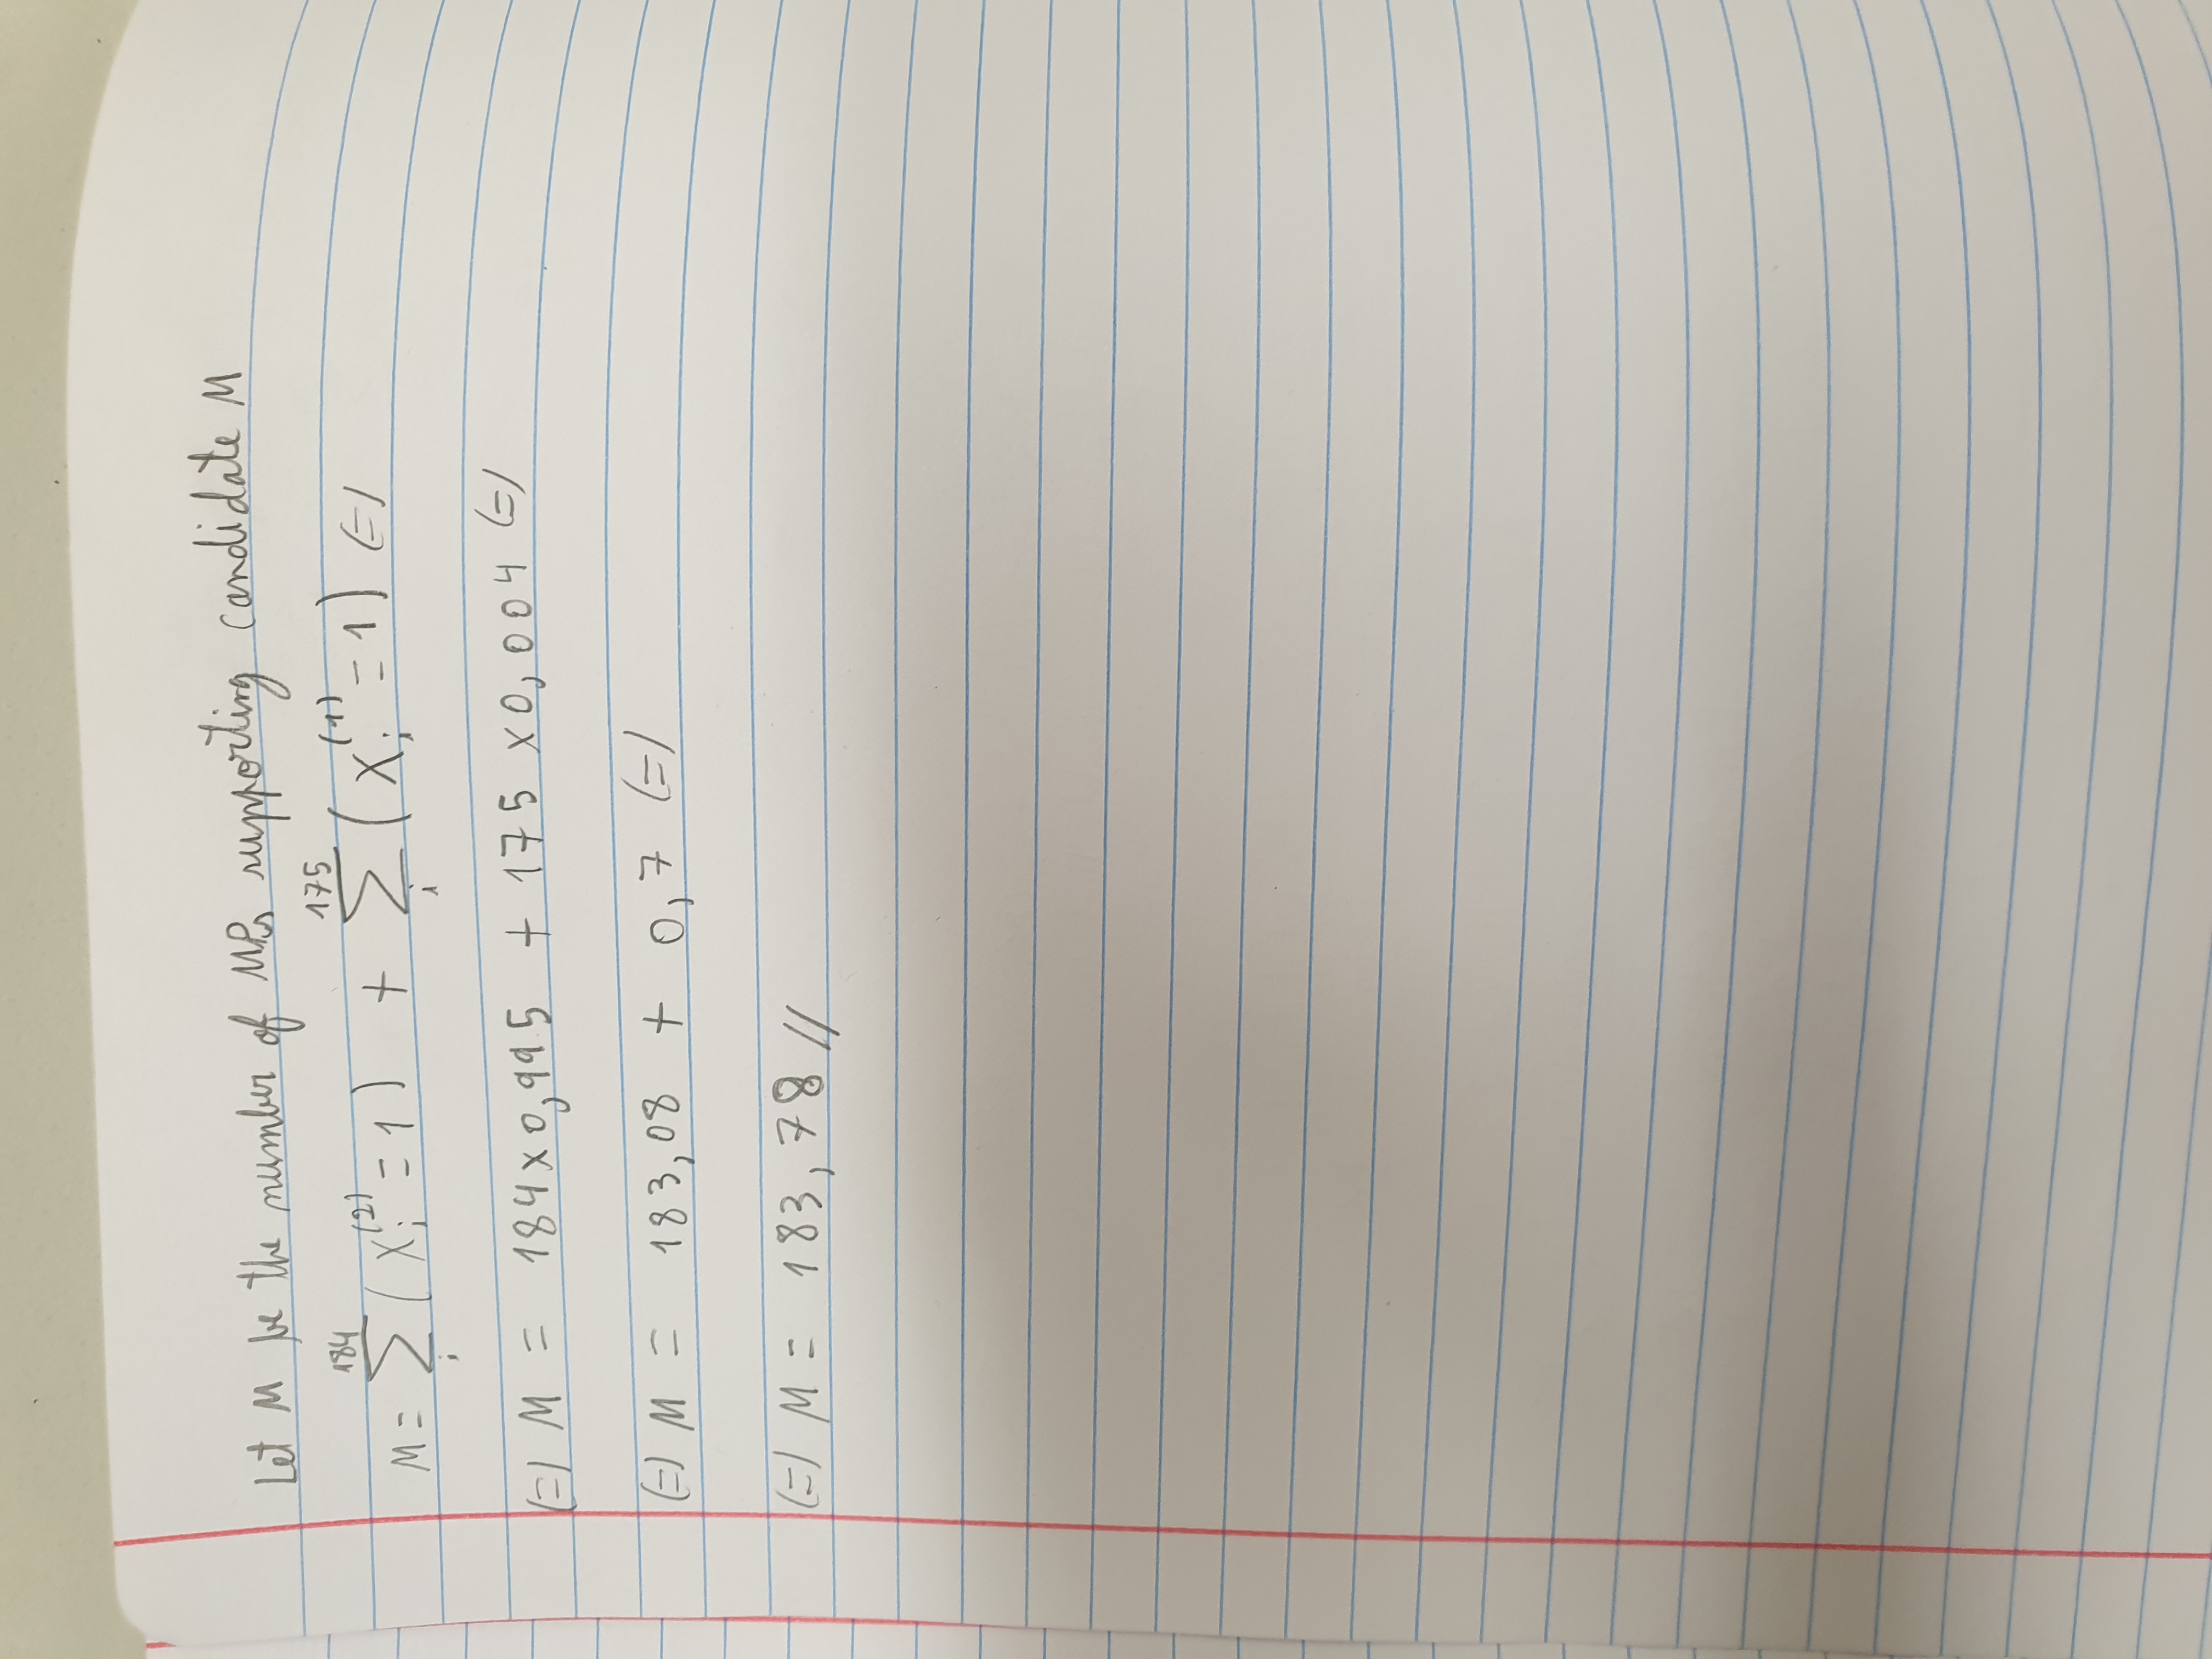 Let M be the number of MPs supporting candidate M
M = ∑_i^184 (X_i^(2) = 1) + ∑_i^175 (X_i^(1) = 1) (=)
(=) M = 184 x 0,995 + 175 x 0,004 (=)
(=) M = 183,08 + 0,7 (=)
(=) M = 183,78 //